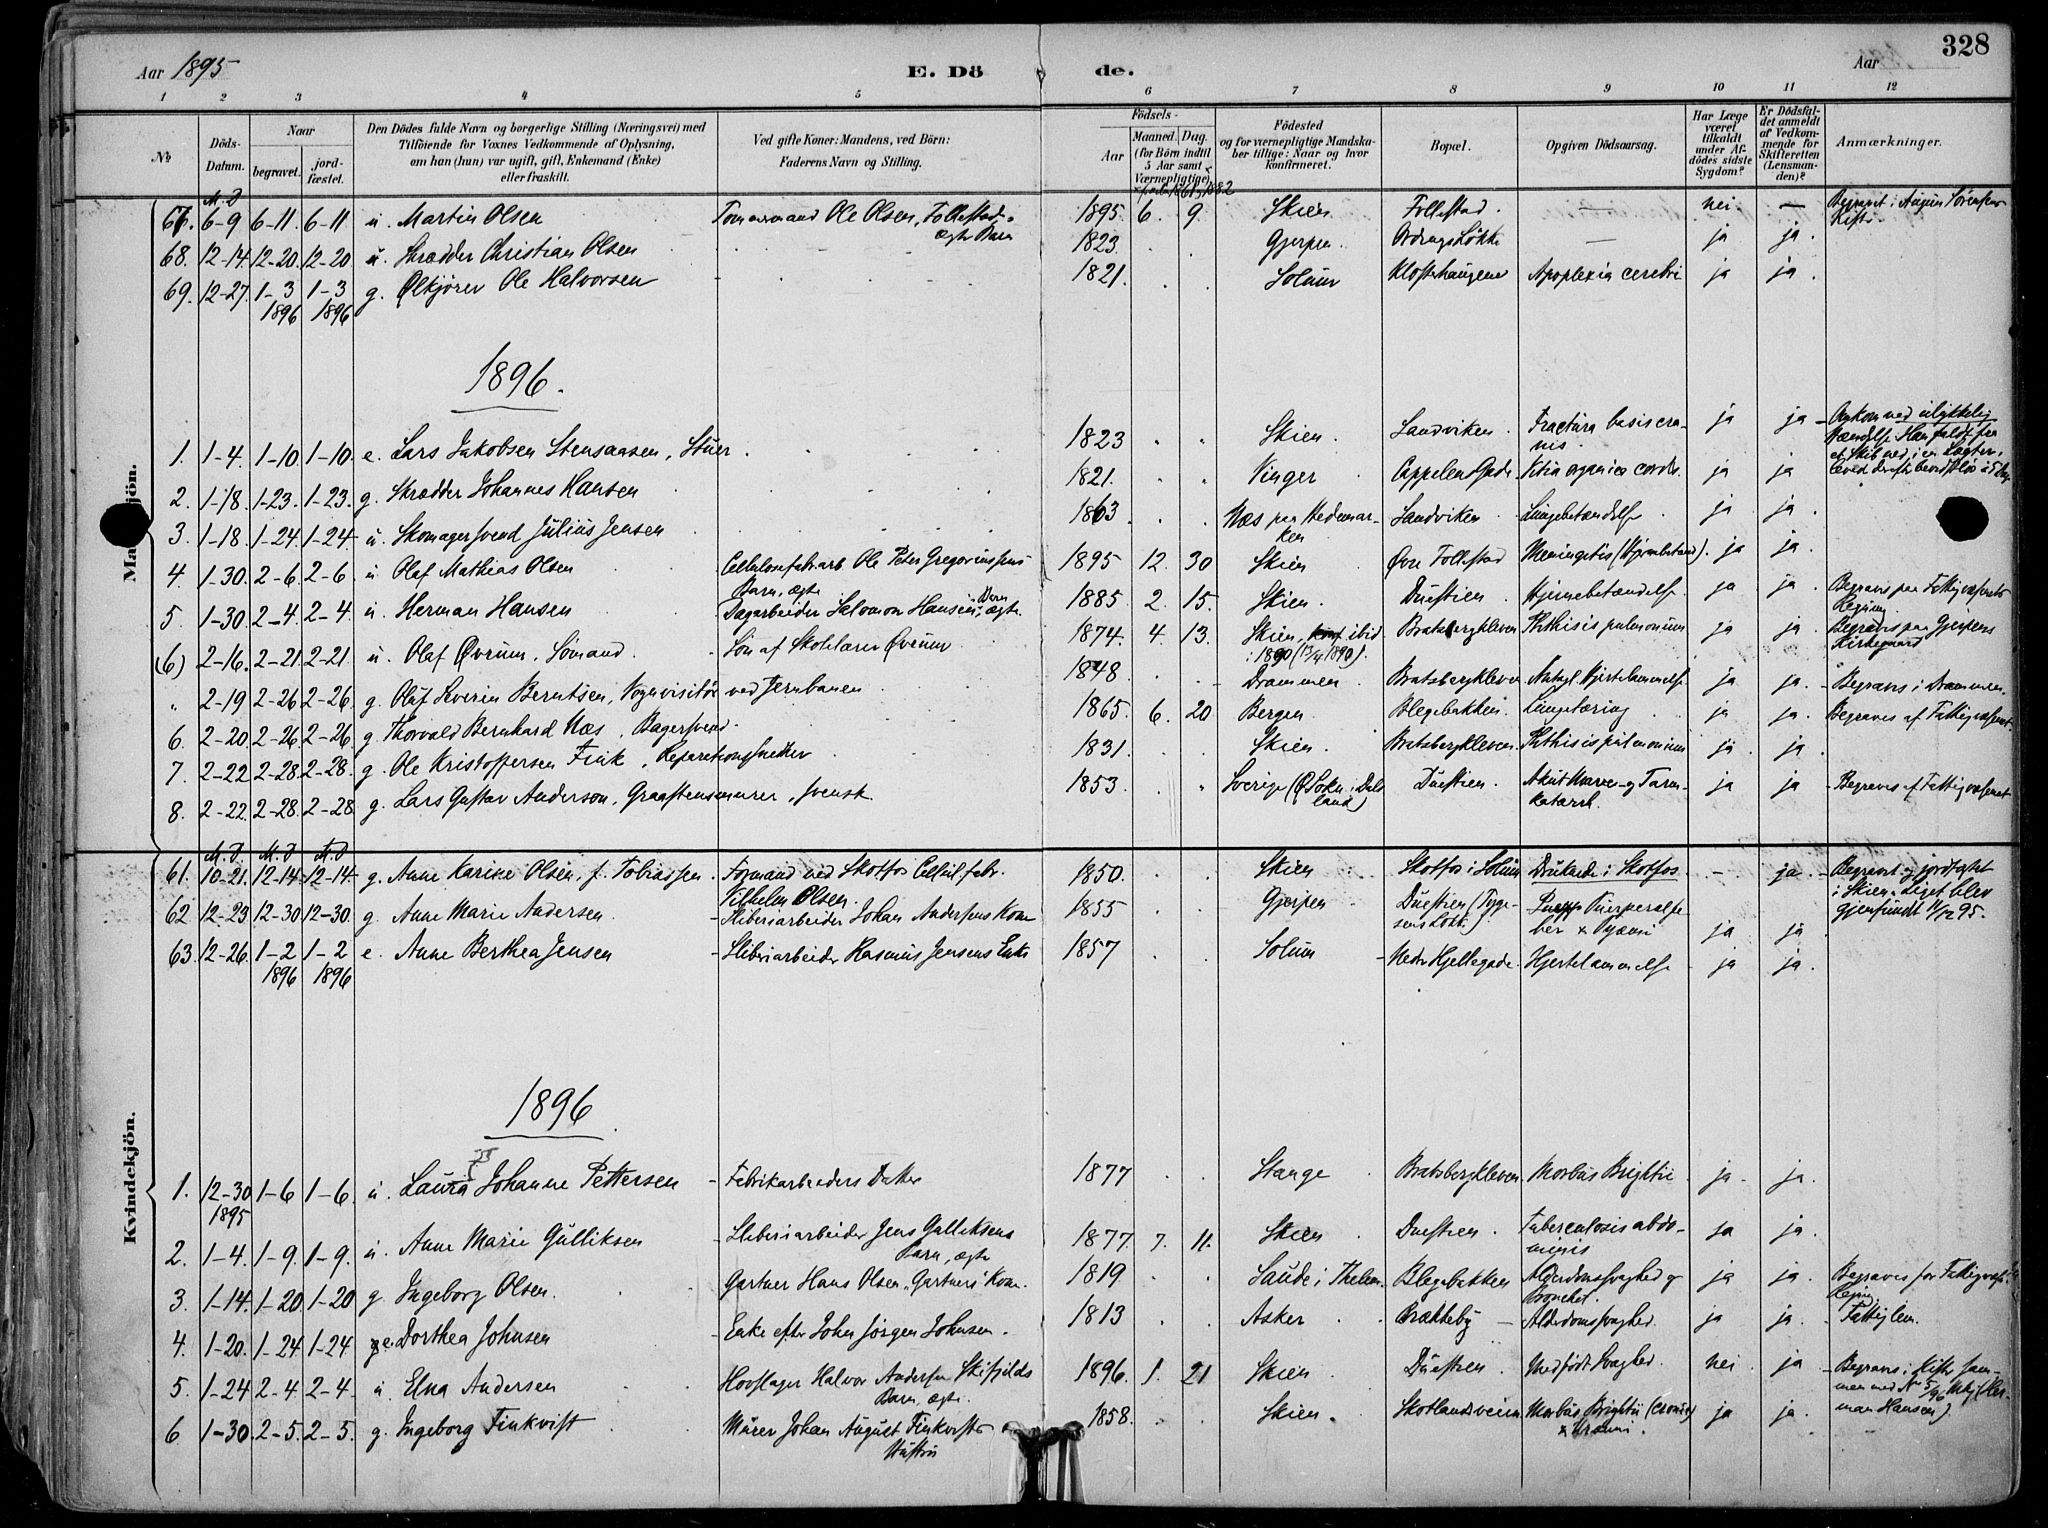 328
Aar 1895 E. Dö de. Aar
1 2 3 4 5 6 7 8 9 10 11 12
No. Döds-Datum. Naar begravet. jord-fæstet. Den Dödes fulde Navn og borgerlige Stilling (Næringsvei) med Tilföiende for Voxnes Vedkommende af Oplysning, om han (hun) var ugift, gift, Enkemand (Enke) eller fraskilt. Ved gifte Koner: Mandens, ved Börn: Faderens Navn og Stilling. Födsels- Aar Maaned. Dag. (for Börn indtil 5 Aar samt Værnepligtige) Födested og for værnepligtige Mandska-ber tillige: Naar og hvor konfirmeret. Bopæl. Opgiven Dödsaarsag. Har Læge været tilkaldt under Af-dödes sidste Sygdom? Er Dödsfal-det anmeldt af Vedkom-mende for Skifteretten (Lensman-den)? Anmærkninger.
M. D
67. 6-9 6-11 6-11 u. Martin Olsen Tømmermand Ole Olsen, Follestad, ægte Barn 1895 6. 9. Skien Follestad. — nei — Begravet i August Sørensens Kiste.
68. 12-14. 12-20. 12-20 u. Skrædder Christian Olsen 1823 Gjerpen. — ja ja.
69. 12-27. 1-3 1896 1-3 1896 g. Ølkjører Ole Halvorsen 1821. Solum Klosterhaugene Apoplexia cerebri ja ja
1896.
Mandkjön.
1. 1-4. 1-10. 1-10. e. Lars Jakobsen Stensaasen, Stuer 1823 Skien. Landviken. Fractura basis cra-nis ja ja Omkom ved ulykkelig Hændelse. Han faldt fra et Skib ned i en Lægter.
2. 1-18. 1-23. 1-23. g. Skrædder Johannes Hansen 1821. Vinger Cappelens Gade. Vitia organica cordis. ja ja
3. 1-18. 1-24. 1-24. u. Skomagersvend Julius Jensen 1863 Næs paa Hedemar-ken Landviken Lungebetændelse. ja ja.
4. 1-30. 2-6. 2-6. u. Olaf Mathias Olsen Cellulosefabr.arb. Ole Peter Gregoriussens Barn, ægte 1895 12. 30 Skien Øvre Follestad Meningitis (Hjernebetænd). ja ja
5. 1-30 2-4 2-4 u. Herman Hansen Dagarbeider Salomon Hansens Barn, ægte 1885 2. 15. Skien. Duestien Hjernebetændelse ja ja. Begraves paa Fattigvæsenets Regning
(6) 2-16. 2-21. 2-21 u. Olaf Øvrum, Sømand. Søn af Skolelærer Øvrum 1874. 4. 13. Skien, konf. ibid i 1890 (13/4 1890). Bratsbergkleven Phthisis pulmonum ja ja Begraves paa Gjerpens Kirkegaard
" 2-19 2-26 2-26. g. Oluf Severin Berntsen, Vognvisitør ved Jernbanen 1848 Drammen Bratsbergkleven Hjertelammelse ja ja. Begraves i Drammen.
6. 2-20. 2-26 2-26 g. Thorvald Bernhard Næs, Bagersvend. 1865. 6. 20 Bergen Blegebakken. Lungetæring ja ja. Begraves af Fattigvæsenet.
7. 2-22. 2-28. 2-28. g. Ole Kristoffersen Fink, Reparationssmed 1831. Skien. Bratsbergkleven. Phthisis pulmonum ja. ja.
8. 2-22. 2-28. 2-28 g. Lars Gustav Anderson, Graastensmurer, svensk 1853. Sverige (Ø i Dal-land) Duestien. Akut Mave- og Tarm-katarrh. ja ja Begraves af Fattigvæsenet
M. D M. D M. D
Kvindekjön.
61. 10-21. 12-14. 12-14. g. Anne Karine Olsen, f. Tobiassen. Formand ved Skotfos Cellul.fabr. Vilhelm Olsen. 1850. Skien Skotfos i Solum Druknede i Skotfos. — ja. Begravet og jordfæstet i Skien. Liget blev gjenfundt 11/12 95.
62 12-23 12-30 12-30. g. Anne Marie Andersen. Sliberiarbeider Johan Andersens Kone 1855 Gjerpen Duestien (Tyge-sens Løkk.) Puerperalfe-ber & Pyæmi ja ja
63. 12-26. 1-2 1896 1-2 1896 e. Anne Berthea Jensen Sliberiarbeider Rasmus Jensens Enke 1857 Solum Nedr Hjellegade. Hjertelammelse ja ja.
1896
1. 12-30 1895 1-6 1-6. u. Laura Johanne Pettersen Fabrikarbeiders Datter 1877 Stange Bratsbergkleven. Morbus Brightii ja. ja.
2. 1-4. 1-9. 1-9. u. Anne Marie Gulliksen Sliberiarbeider Jens Gulliksens Barn, ægte 1877. 7. 11. Skien Duestien. Tuberculosis abdo-minis ja ja.
3. 1-14. 1-20. 1-20 g Ingeborg Olsen. Gartner Hans Olsen "Gartners" Kone. 1819 Saude i Thelem. Blegebakken Alderdomssvaghed og Bronchit. ja ja. Begraves for Fattigvæs. Regn.
4. 1-20. 1-24 1-24 e Dorthea Johnsen Enke efter John Jørgen Johnsen. 1813 Asker Brækkeby — Alderdomssvaghed. ja ja. Fattiglem.
5. 1-24 2-4 2-4. u. Elna Andersen Hovslager Halvor Andersen Skifjelds Barn, ægte. 1896. 1. 21 Skien Duestien. Medfødt Svaghed. nei. ja Begraves i Kiste sam-men med No 5/96 Mkj. (Her-man Hansen).
6 1-30. 2-5. 2-5. g. Ingeborg Finkvist Murer Johan August Finkvists Hustru 1858. Skien. Skotlandsveien Morbus Brightii (cronic) & Uræmi. ja ja.